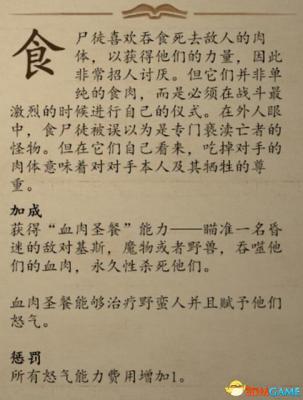 食尸徒喜欢吞食死去敌人的肉
体，以获得他们的力量，因此
非常招人讨厌。但它们并非单
纯的食肉，而是必须在战斗最
激烈的时候进行自己的仪式。在外人眼
中，食尸徒被误以为是专门亵渎亡者的
怪物。但在它们自己看来，吃掉对手的
肉体意味着对对手本人及其牺牲的尊
重。
加成
获得“血肉圣餐”能力——瞄准一名昏
迷的敌对基斯，魔物或者野兽，吞噬他
们的血肉，永久性杀死他们。
血肉圣餐能够治疗野蛮人并且赋予他们
怒气。
惩罚
所有怒气能力费用增加1。